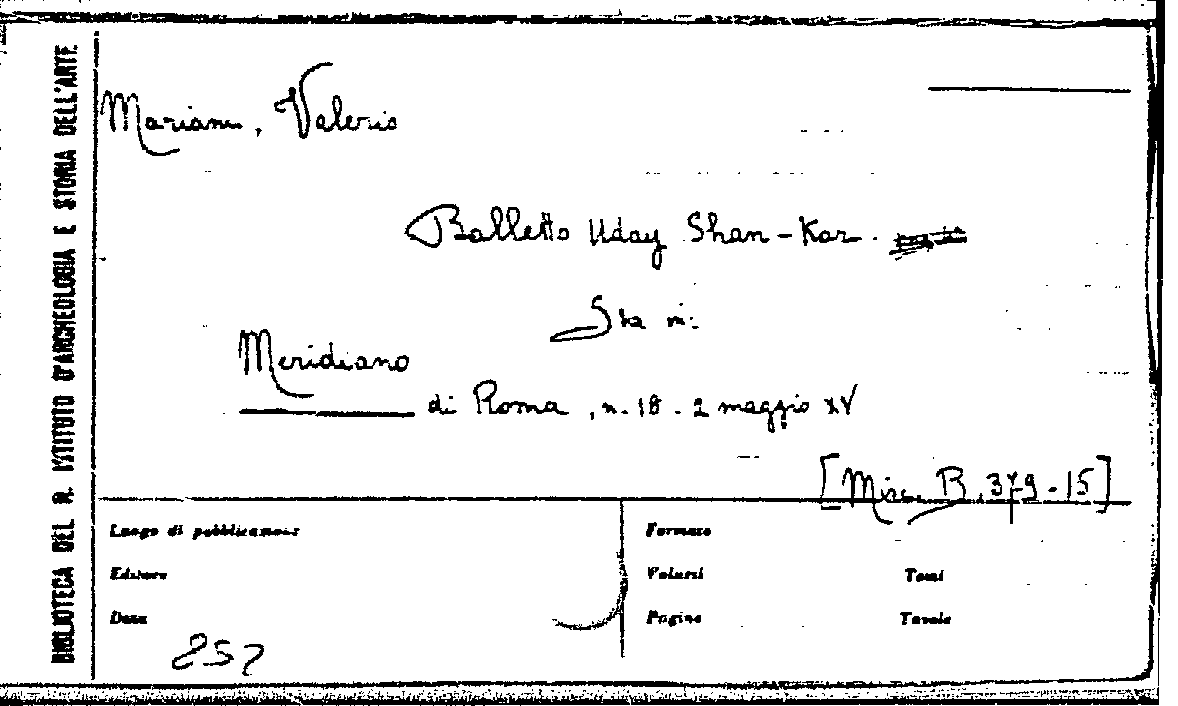 BIBLIOTECA DEL R. ISTITUTO D'ARCHEOLOGIA E STORIA DELL'ARTE
Mariani, Valerio
Balletto Uday Shan-Kar.
Sta in:
Meridiano
di Roma, n. 18 - 2 maggio XV
[Misc. B. 379-15]
Luogo di pubblicazione
Formato
Editore
Volumi Tomi
Data
Pagine Tavole
252